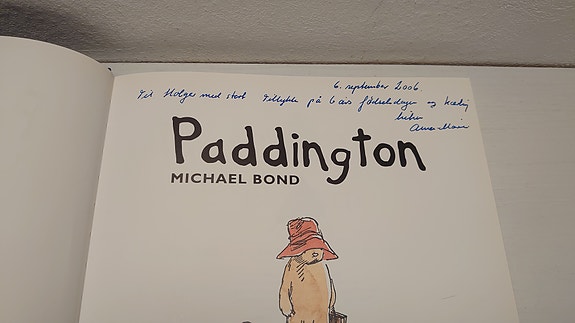 6. september 2006.
Til Holger med stort tillykke på 6 års fødselsdagen og kærlig
hilsen
Anne-Marie
Paddington
MICHAEL BOND